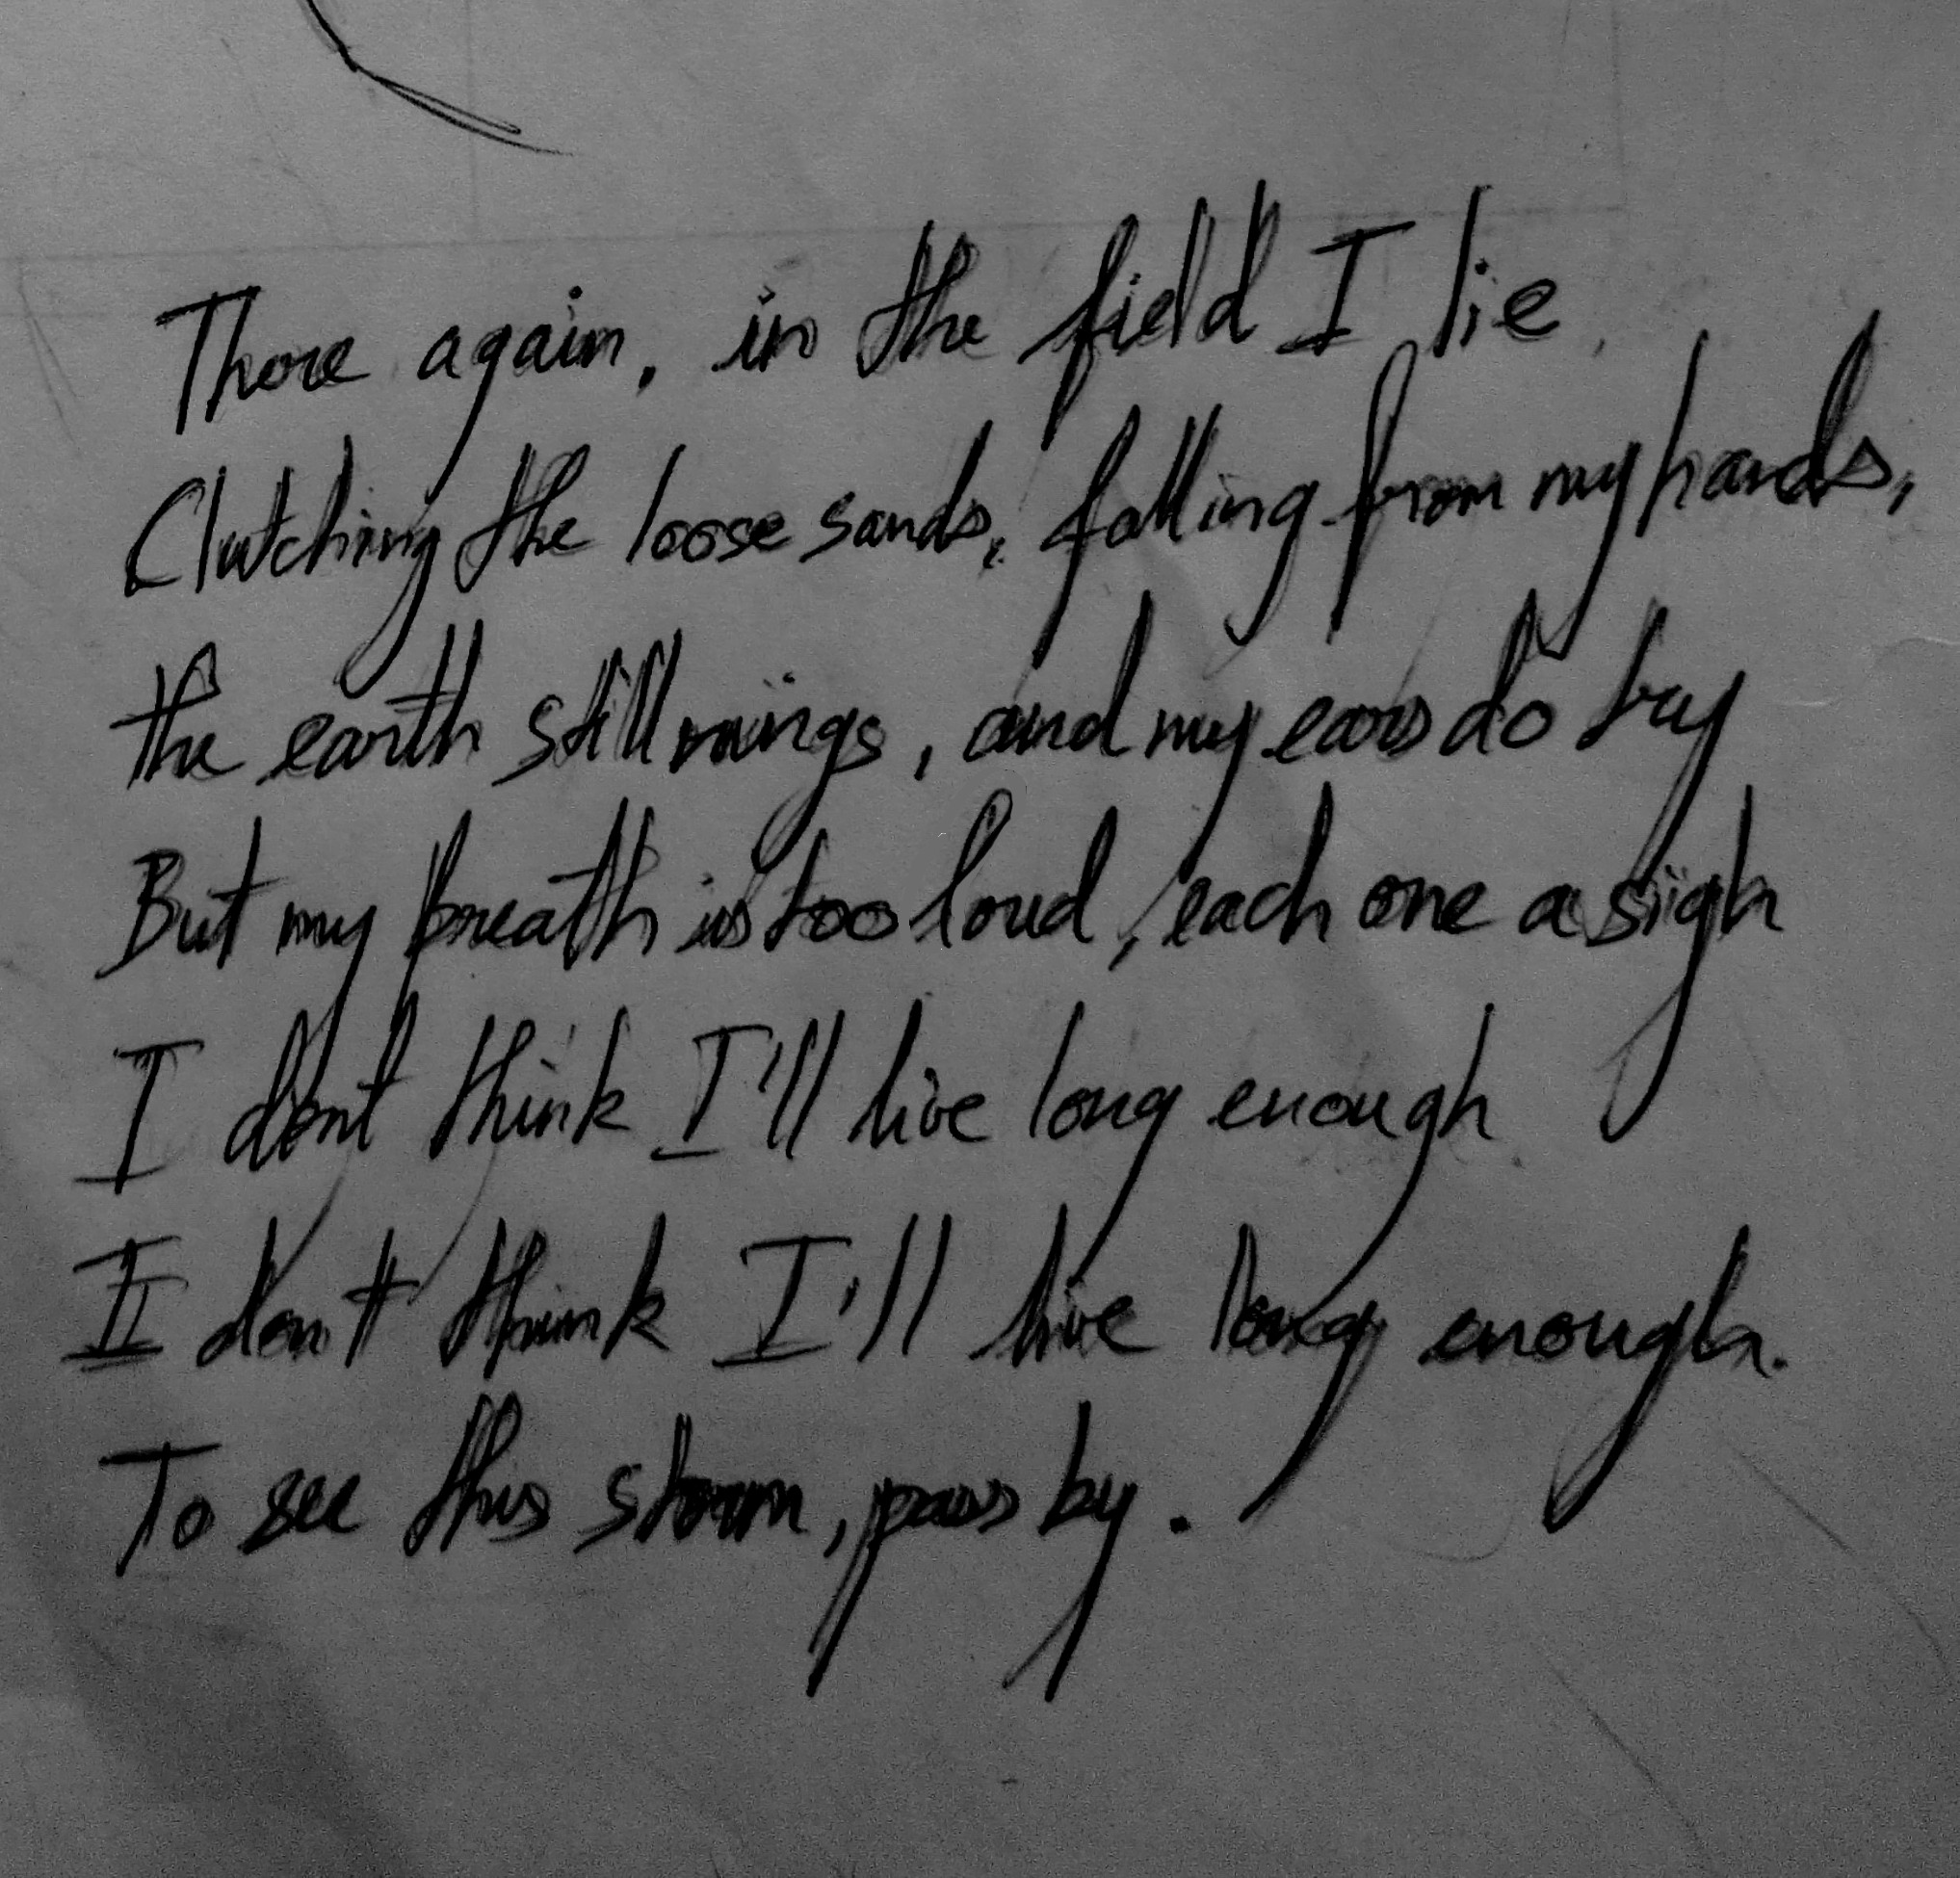 There again, in the field I lie
Clutching the loose sands, falling from my hands,
the earth still rings, and my ears do try
But my breath is too loud, each one a sigh
I dont think I'll live long enough
I don't think I'll live long enough.
To see this storm, pass by.